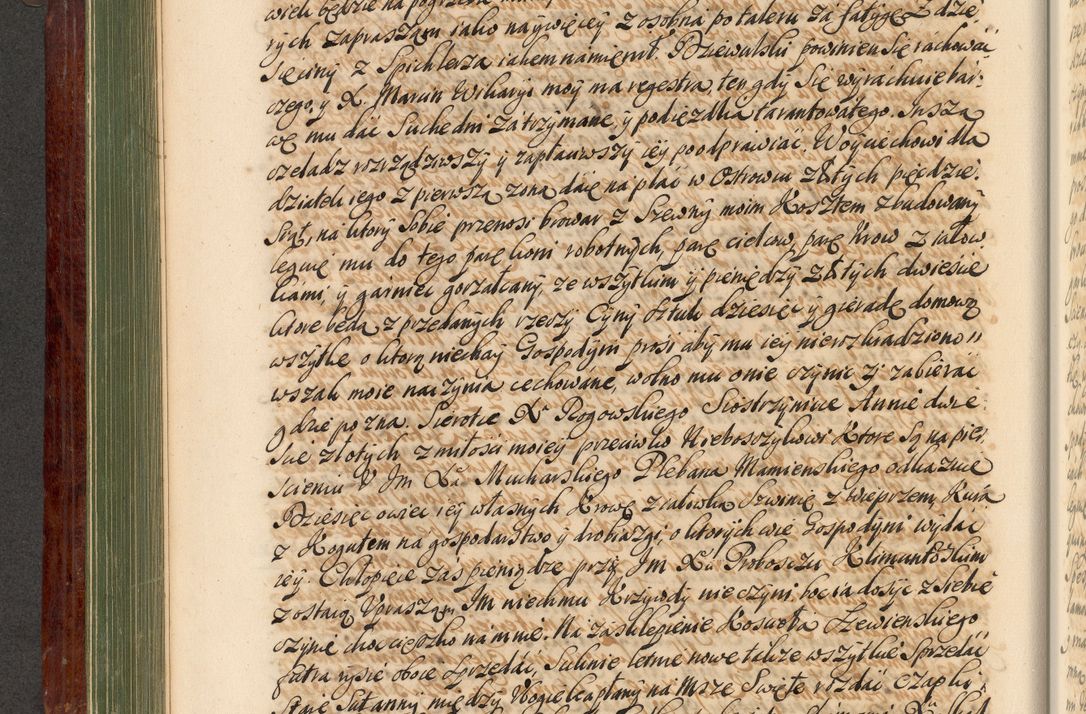 wieli będzie na pogrzebie
rych zapraszam iako naywięcey z osobna po taleru za fatygę Z dzie,
sięciny z Spichlerza iakem namienił. Dziewalski powinien się rachować
czego, y X. Marcin Wikaryi moy ma regestra, ten gdy się wyrachuie kar,
wę mu dać Suchedni zatrzymane, y podiezdka tarantowatego. Insza
czeladz rozrządziwszy y zapłaciwszy iey poodprawiać. Woyciechowi dla
dziatek iego z pierwszą zoną daię na plac w Ostrowcu złotych pięćdzie,
siąt, na ktory sobie przenosi browar z Szewny moim Kosztem zbudowany
leguię mu do tego parę koni robotnych, parę cielcow, parę krow z iałow
kami, y garniec gorzałczany, ze wszytkim y pieniędzy złotych dwieście
ktore będą z przedanych rzeczy Cyny sztuk dziesięć y gieradę domową
wszytkę o ktorą niechay Gospodyni prosi aby mu iey nierozkradziono
wszak moie naczynia cechowane, wolno mu onie czynic y zabierać
gdzie pozna. Sierotce X. Rogowskiego Siostrzynice Annie dwie
scie złotych z miłosci moiey przeciwko Nieboszczykowi Ktore są na pier,
scieniu V Jm Xa Mucharskiego Plebana Mamienskiego odkazuię
Dziesięc owiec iey własnych Krowę z iałowką Szwinię z wieprzem, Kurą
z Kogutem na gospodarstwo y drobiazgi, o ktorych wie Gospodyni wydac
iey. Chłopięce zas pieniądze przy Jm Xu Proboszczu Klimuntoskim
zostaią Vpraszam JM niechmu Krzywdy nie czyni, bo ia dosyc z siebie
czynię choc cięszko na mnie. Na zasklepienie Koscioła Szewienskiego
futra rysie oboie sprzedać, Suknie letnie nowe takze wszytkie Sprzedać
stare Sutanny między Vbogie kapłany na Msze Swięte rozdać Czapki